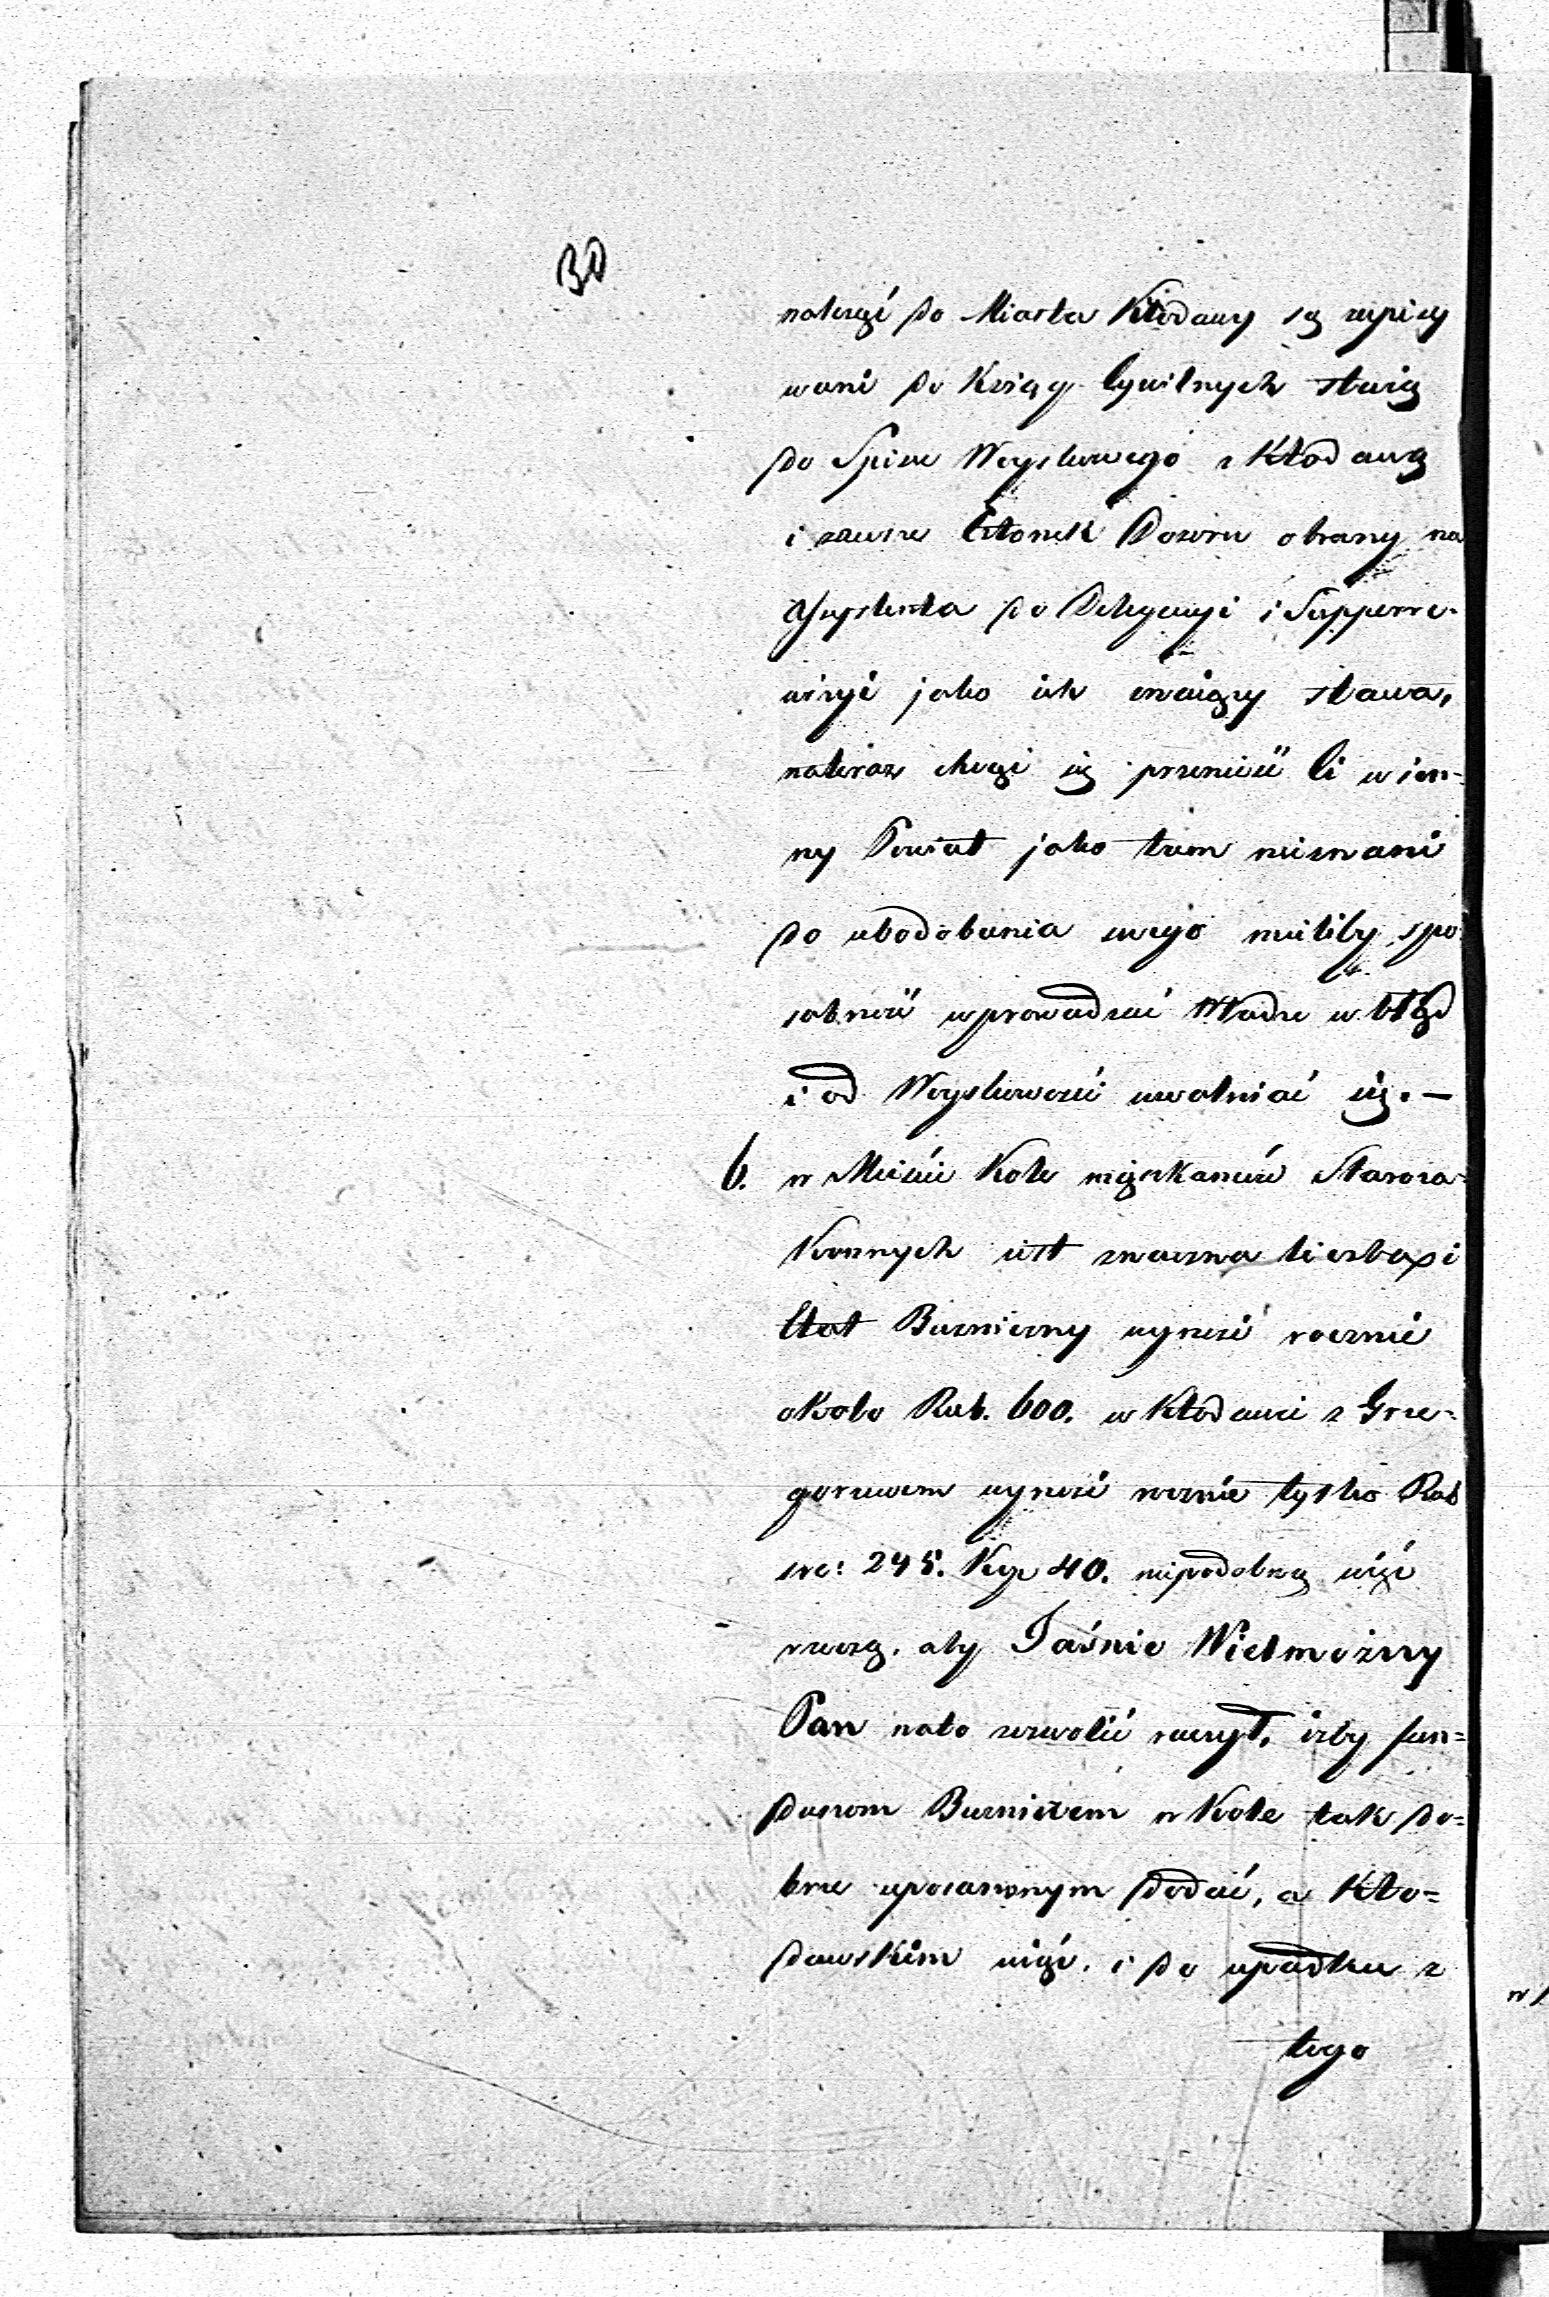 30
należéć do Miasta Kłodawy są zapisy
wani do Ksiąg Cywilnych staią
do Spisu Woyskowego z Kłodawą
i zawsze Członek Dozoru obrany na
Assystenta do Delegacyi i Supperre-
wizyi jako ich znaiący stawa,
nateraz chcąc się przenieść li w in-
ny Powiat jako tam nieznani
do upodobania swego mieliby spo
sobność wprowadzać Władze w błąd
i od Woyskowości uwalniać się. —
6. w Mieście Kole mięszkańców Staroza-
Konnych iest znaczna liczba i
Etat Bużniczny wynosi rocznie
około Rub. 600. w Kłodawie z Grze-
gorzewem wynosi rocznie tylko Rub
sre: 245. Kop 40. niepodobną więc
rzeczą, aby Jaśnie Wielmożny
Pan nato zezwolić raczył, iżby fun-
duszom Bużniczém w Kole tak do-
brze uposażonym dodać, a Kło-
dawskim ująć, i do upadku z
tego